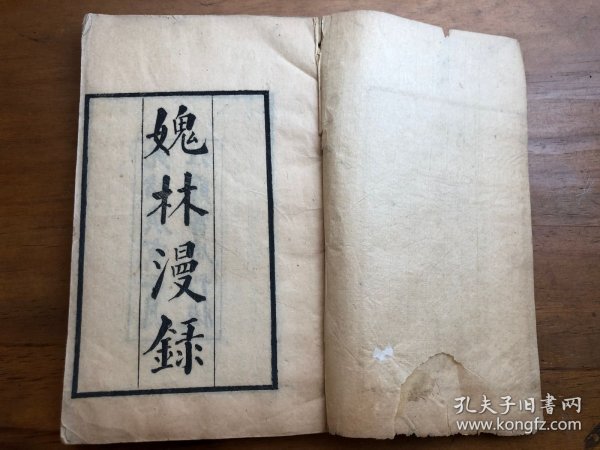 媿林漫錄
孔夫子旧書网
www.kongfz.com